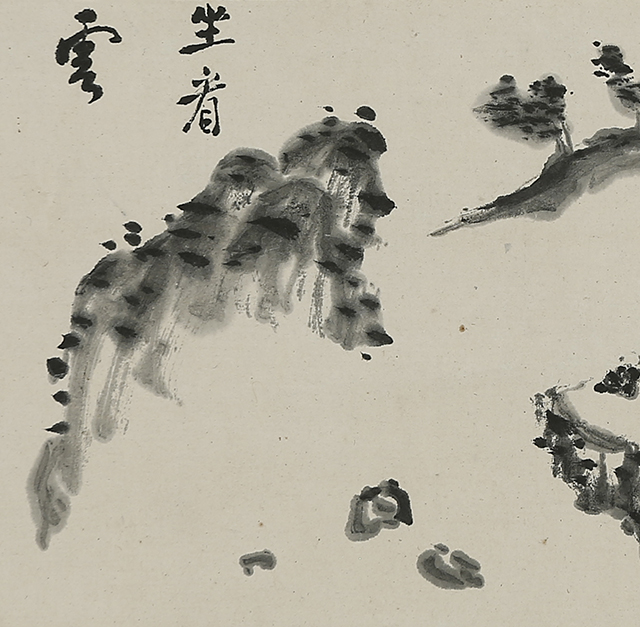 坐看
雲